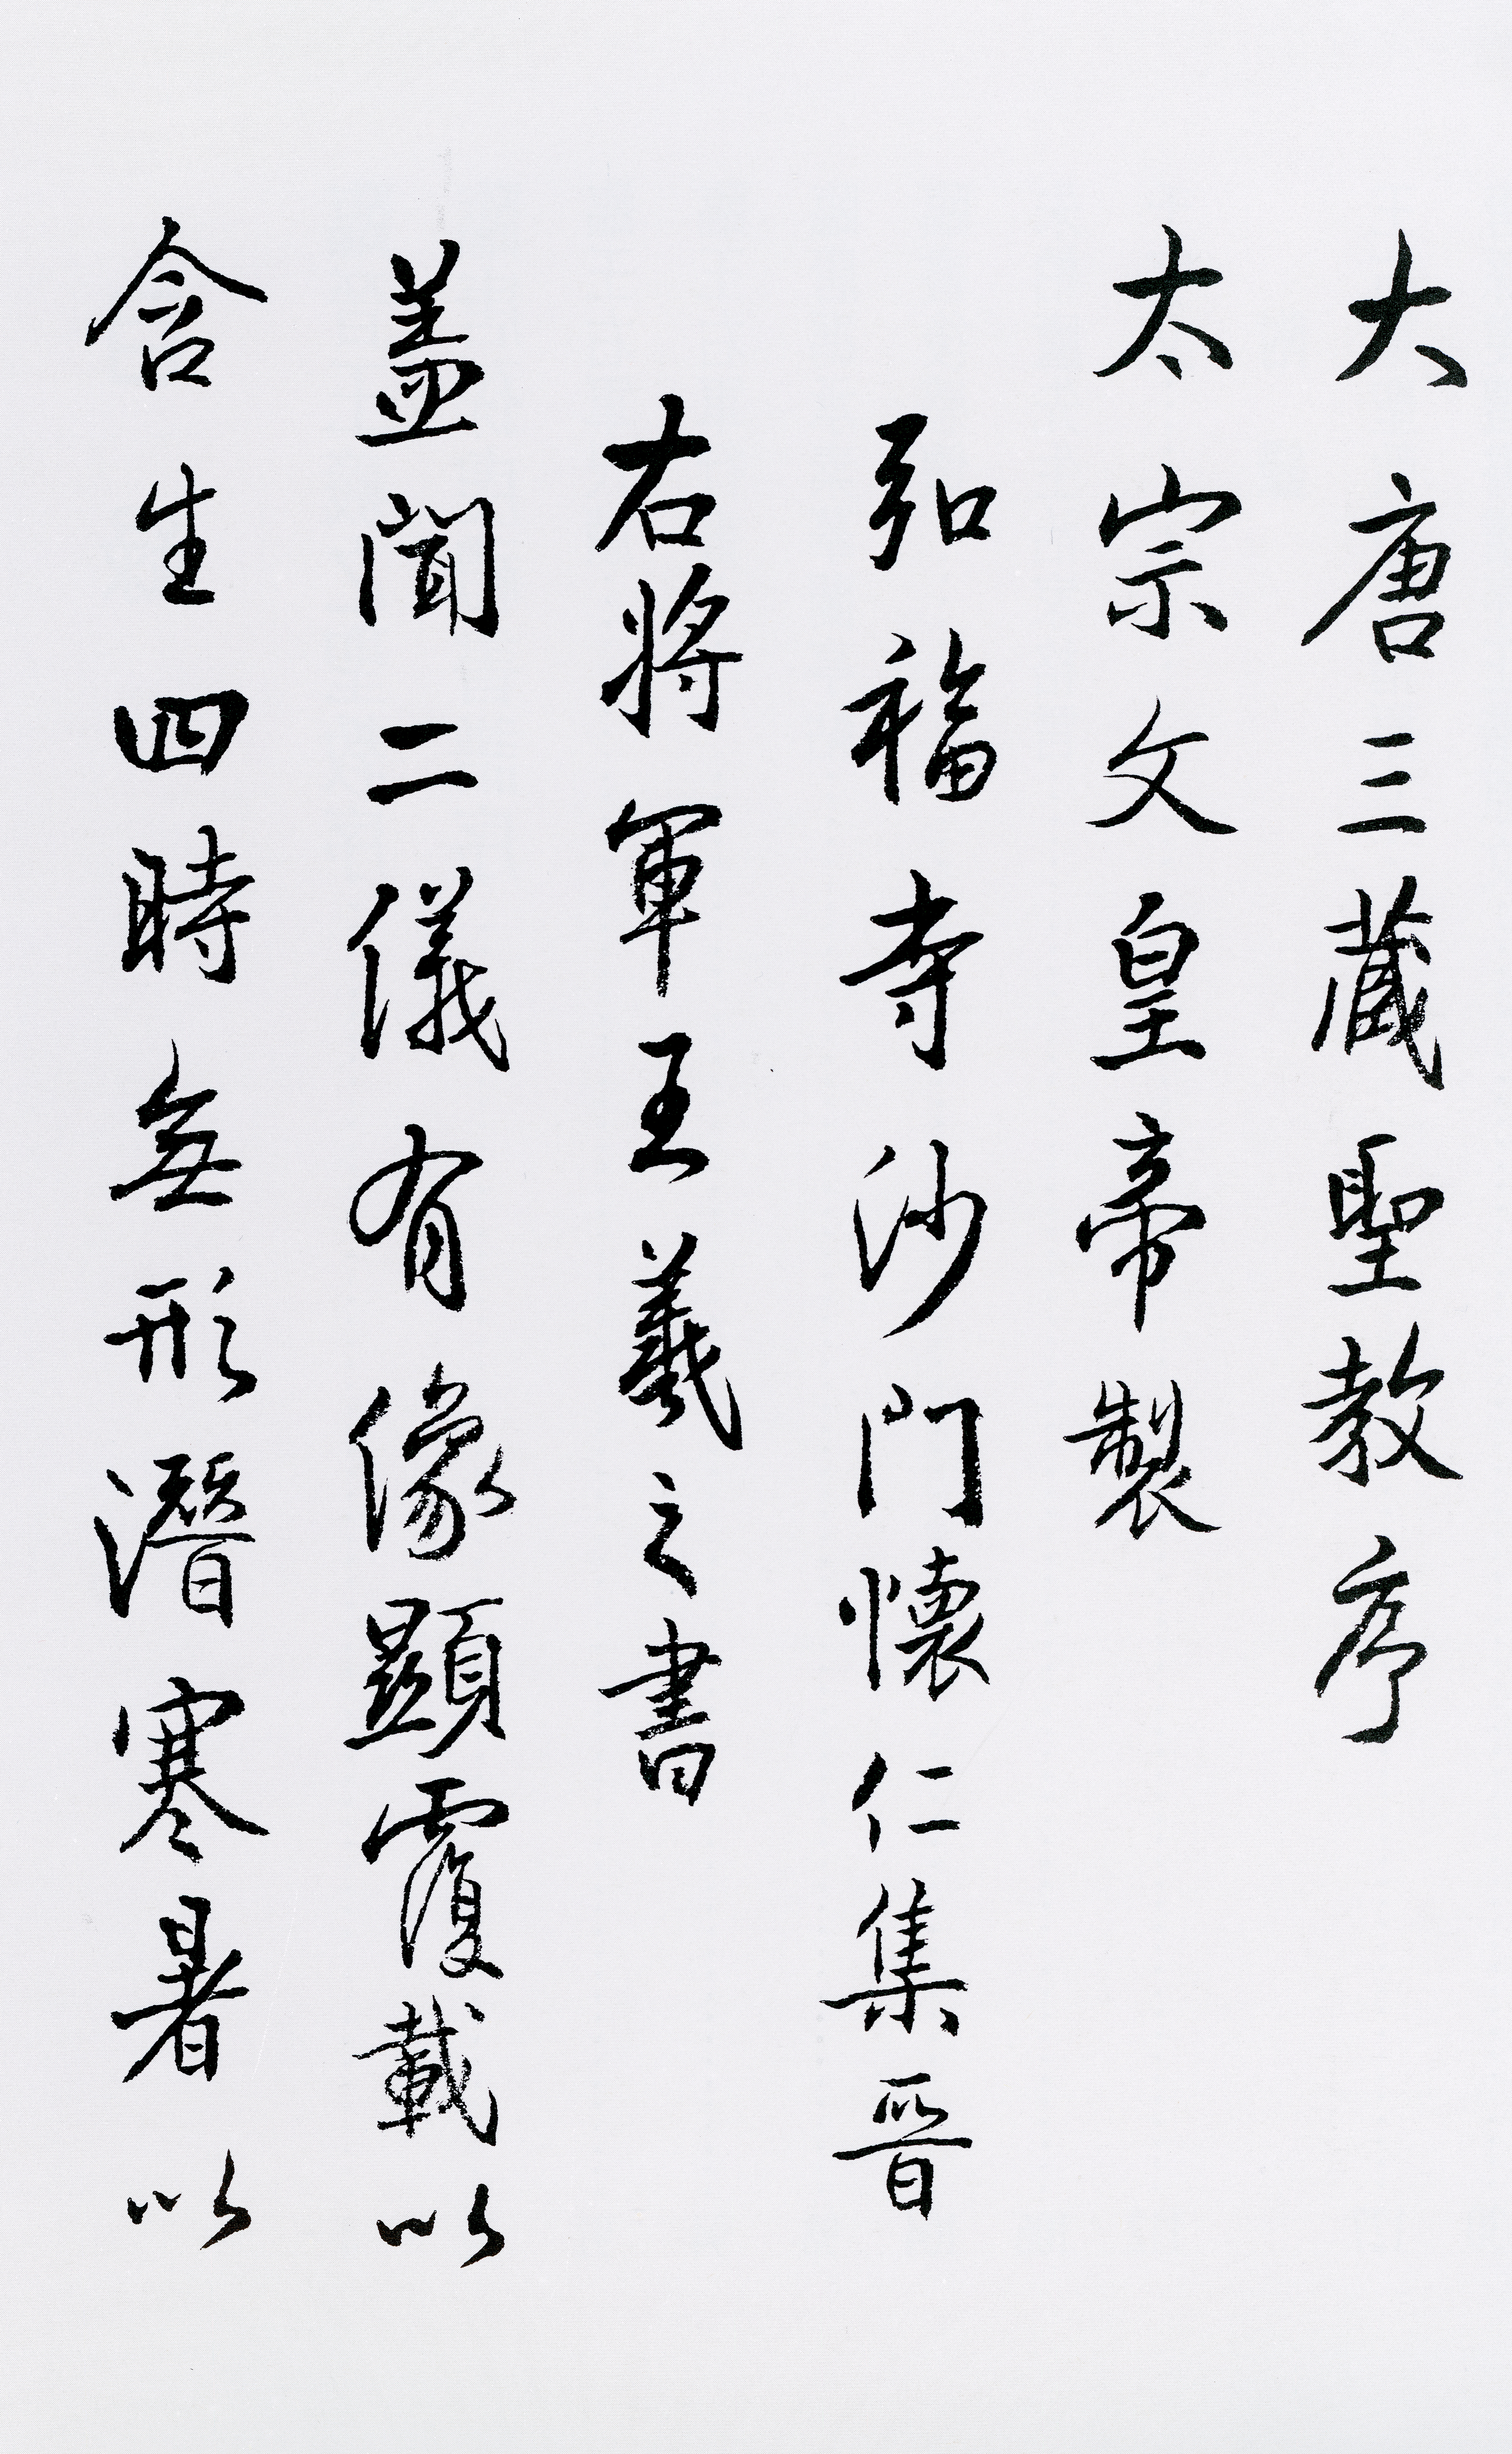 大唐三藏聖教序
太宗文皇帝製
弘福寺沙門懷仁集晉
右將軍王羲之書
蓋聞二儀有像顯覆載以
含生四時無形潛寒暑以